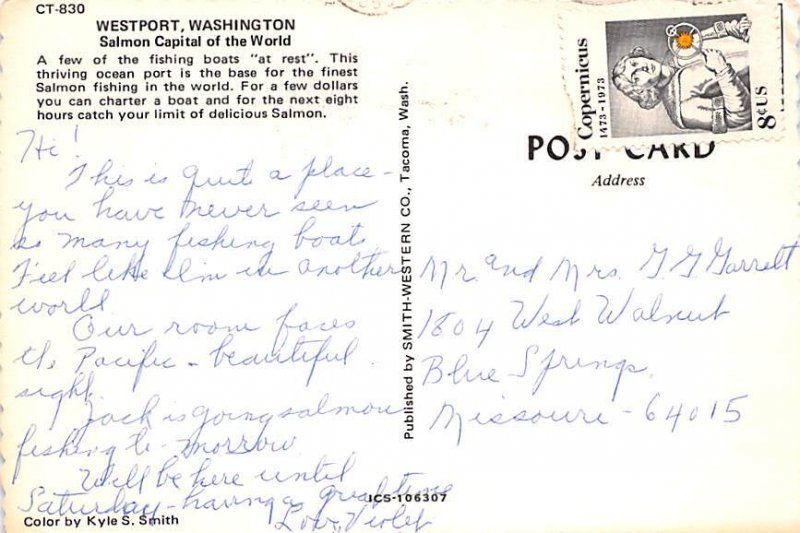 CT-830
WESTPORT, WASHINGTON
Salmon Capital of the World
A few of the fishing boats "at rest". This
thriving ocean port is the base for the finest
Salmon fishing in the world. For a few dollars
you can charter a boat and for the next eight
hours catch your limit of delicious Salmon.
Hi!
This is quit a place -
you have never seen
so many fishing boats.
Feel like I'm in another
world.
Our room faces
the Pacific - beautiful
sight.
Jack is going salmon
fishing to-morrow
Will be here until
Saturday - having a great time
Love, Violet
Color by Kyle S. Smith
Published by SMITH-WESTERN CO., Tacoma, Wash.
ICS-106307
Copernicus
1473-1973
8¢ US
POST CARD
Address
Mr. and Mrs. G G Garrett
1604 West Walnut
Blue Springs,
Missouri - 64015